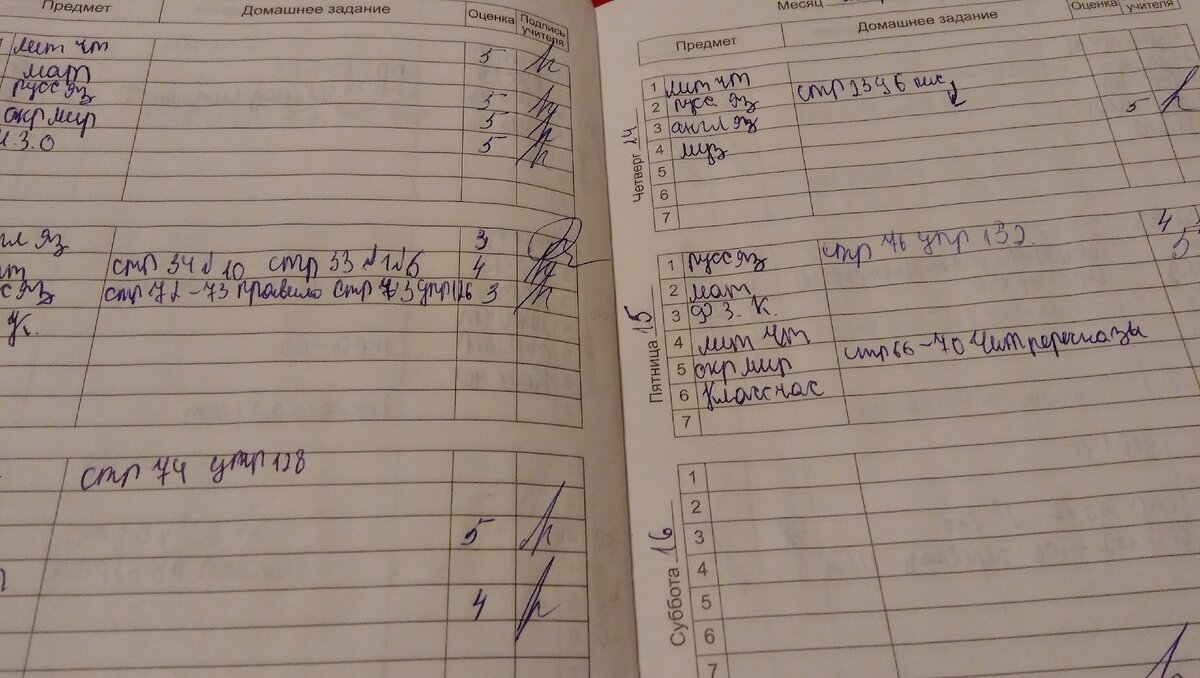 Предмет Домашнее задание Оценка Подпись учителя
лит чт 5
мат
русс яз 5
окр мир 5
И.З.О 5
гл яз 3
ат стр 34 №10 стр 33 №1 №6 4
сс яз стр 72-73 правило стр 73 упр 126 3
К.
стр 74 упр 128
5
4
Месяц
Предмет Домашнее задание Оценка учителя
Четверг 14
1 лит чт стр
2 русс яз
3 англ яз 5
4 муз
5
6
7
Пятница 15
1 русс яз стр 76 упр 132 4
2 мат 5
3 Ф З. К.
4 лит чт
5 окр мир стр 66-70 Чит пересказы
6 Класс час
7
Суббота 16
1
2
3
4
5
6
7